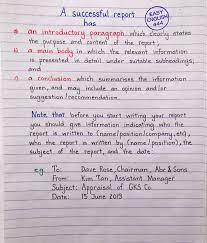 A successful report
has
EASY ENGLISH 444
a) an introductory paragraph which clearly states
the purpose and content of the report ;
b) a main body in which the relevant information
is presented in detail under suitable subheadings;
and
c) a conclusion which summarises the information
given, and may include an opinion and/or
suggestion/recommendation.
Note that before you start writing your report
you should give information indicating who the
report is written to (name/position/company,etc),
who the report is written by (name/position), the
subject of the report, and the date.
e.g. To: Dave Rose, Chairman, Abc & Sons
From: Kim Tan, Assistant Manager
Subject: Appraisal of GKS Co.
Date: 15 June 2019